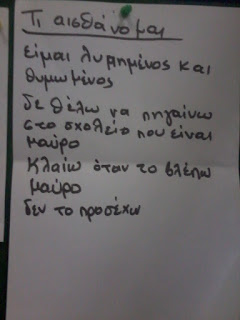 Τι αισθάνομαι
είμαι λυπημένος και
θυμωμένος
δε θέλω να πηγαίνω
στο σχολείο που είναι
μαύρο
Κλαίω όταν το βλέπω
μαύρο
δεν το προσέχω